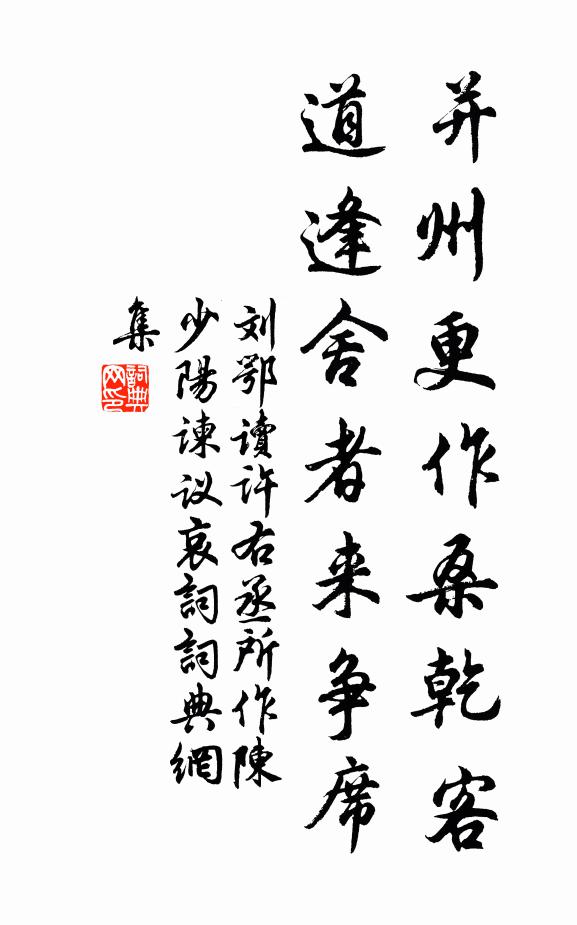 并州更作桑乾客
道逢舍者来争席
刘鄂读许右丞所作陳
少陽谏议哀詞詞典網
集
詞典网印